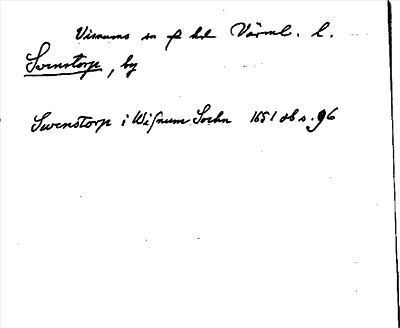 Visnums sn o hd Värml. l.
Svenstorp, by
Swenstorp i Wisnum Sochn 1651 db s. 96